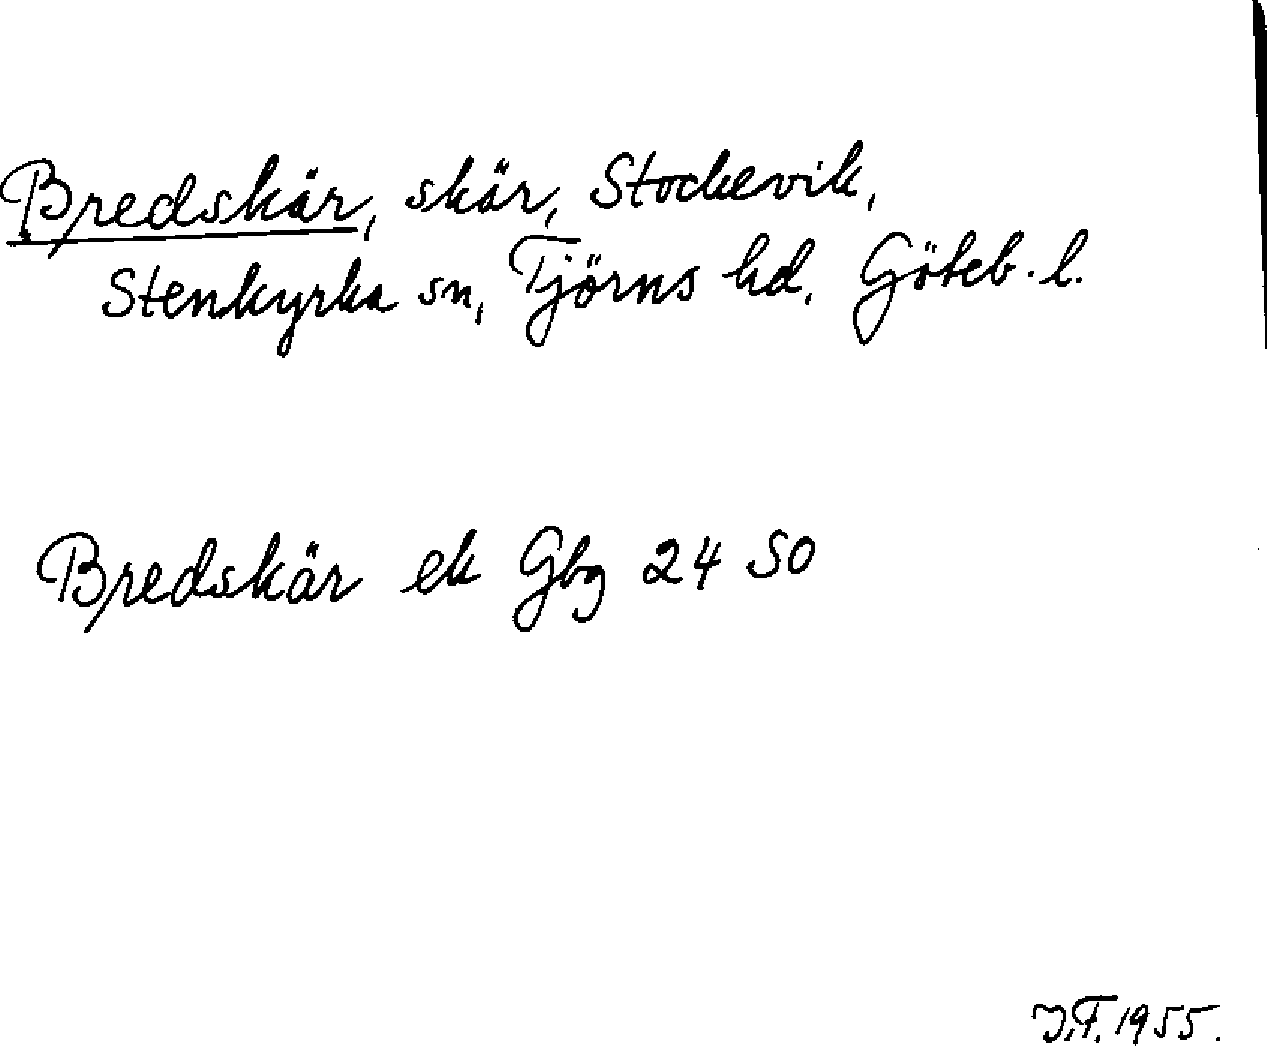 Bredskär, skär, Stockevik,
Stenkyrka sn, Tjörns hd, Göteb. l.
Bredskär ek Gbg 24 SO
J.F. 1955.